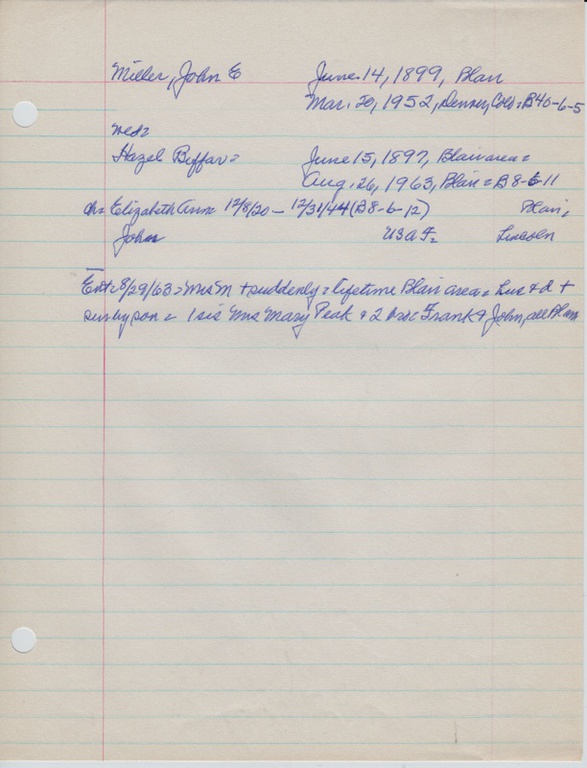 Miller, John E June 14, 1899, Blair
Mar. 20, 1952, Denver, Colo = B40-6-5
wed =
Hazel Beffar = June 15, 1897, Blair area =
Aug. 26, 1963, Blair = B8-6-11
ch = Elizabeth Ann 12/8/20 - 12/31/44 (B8-6-12) Blair,
John USAF = Lincoln
Ent = 8/29/63 = Mrs M + suddenly = lifetime Blair area = &
sur by son = 1 sis Mrs Mary Peak & 2 bro Frank & John, all Blair